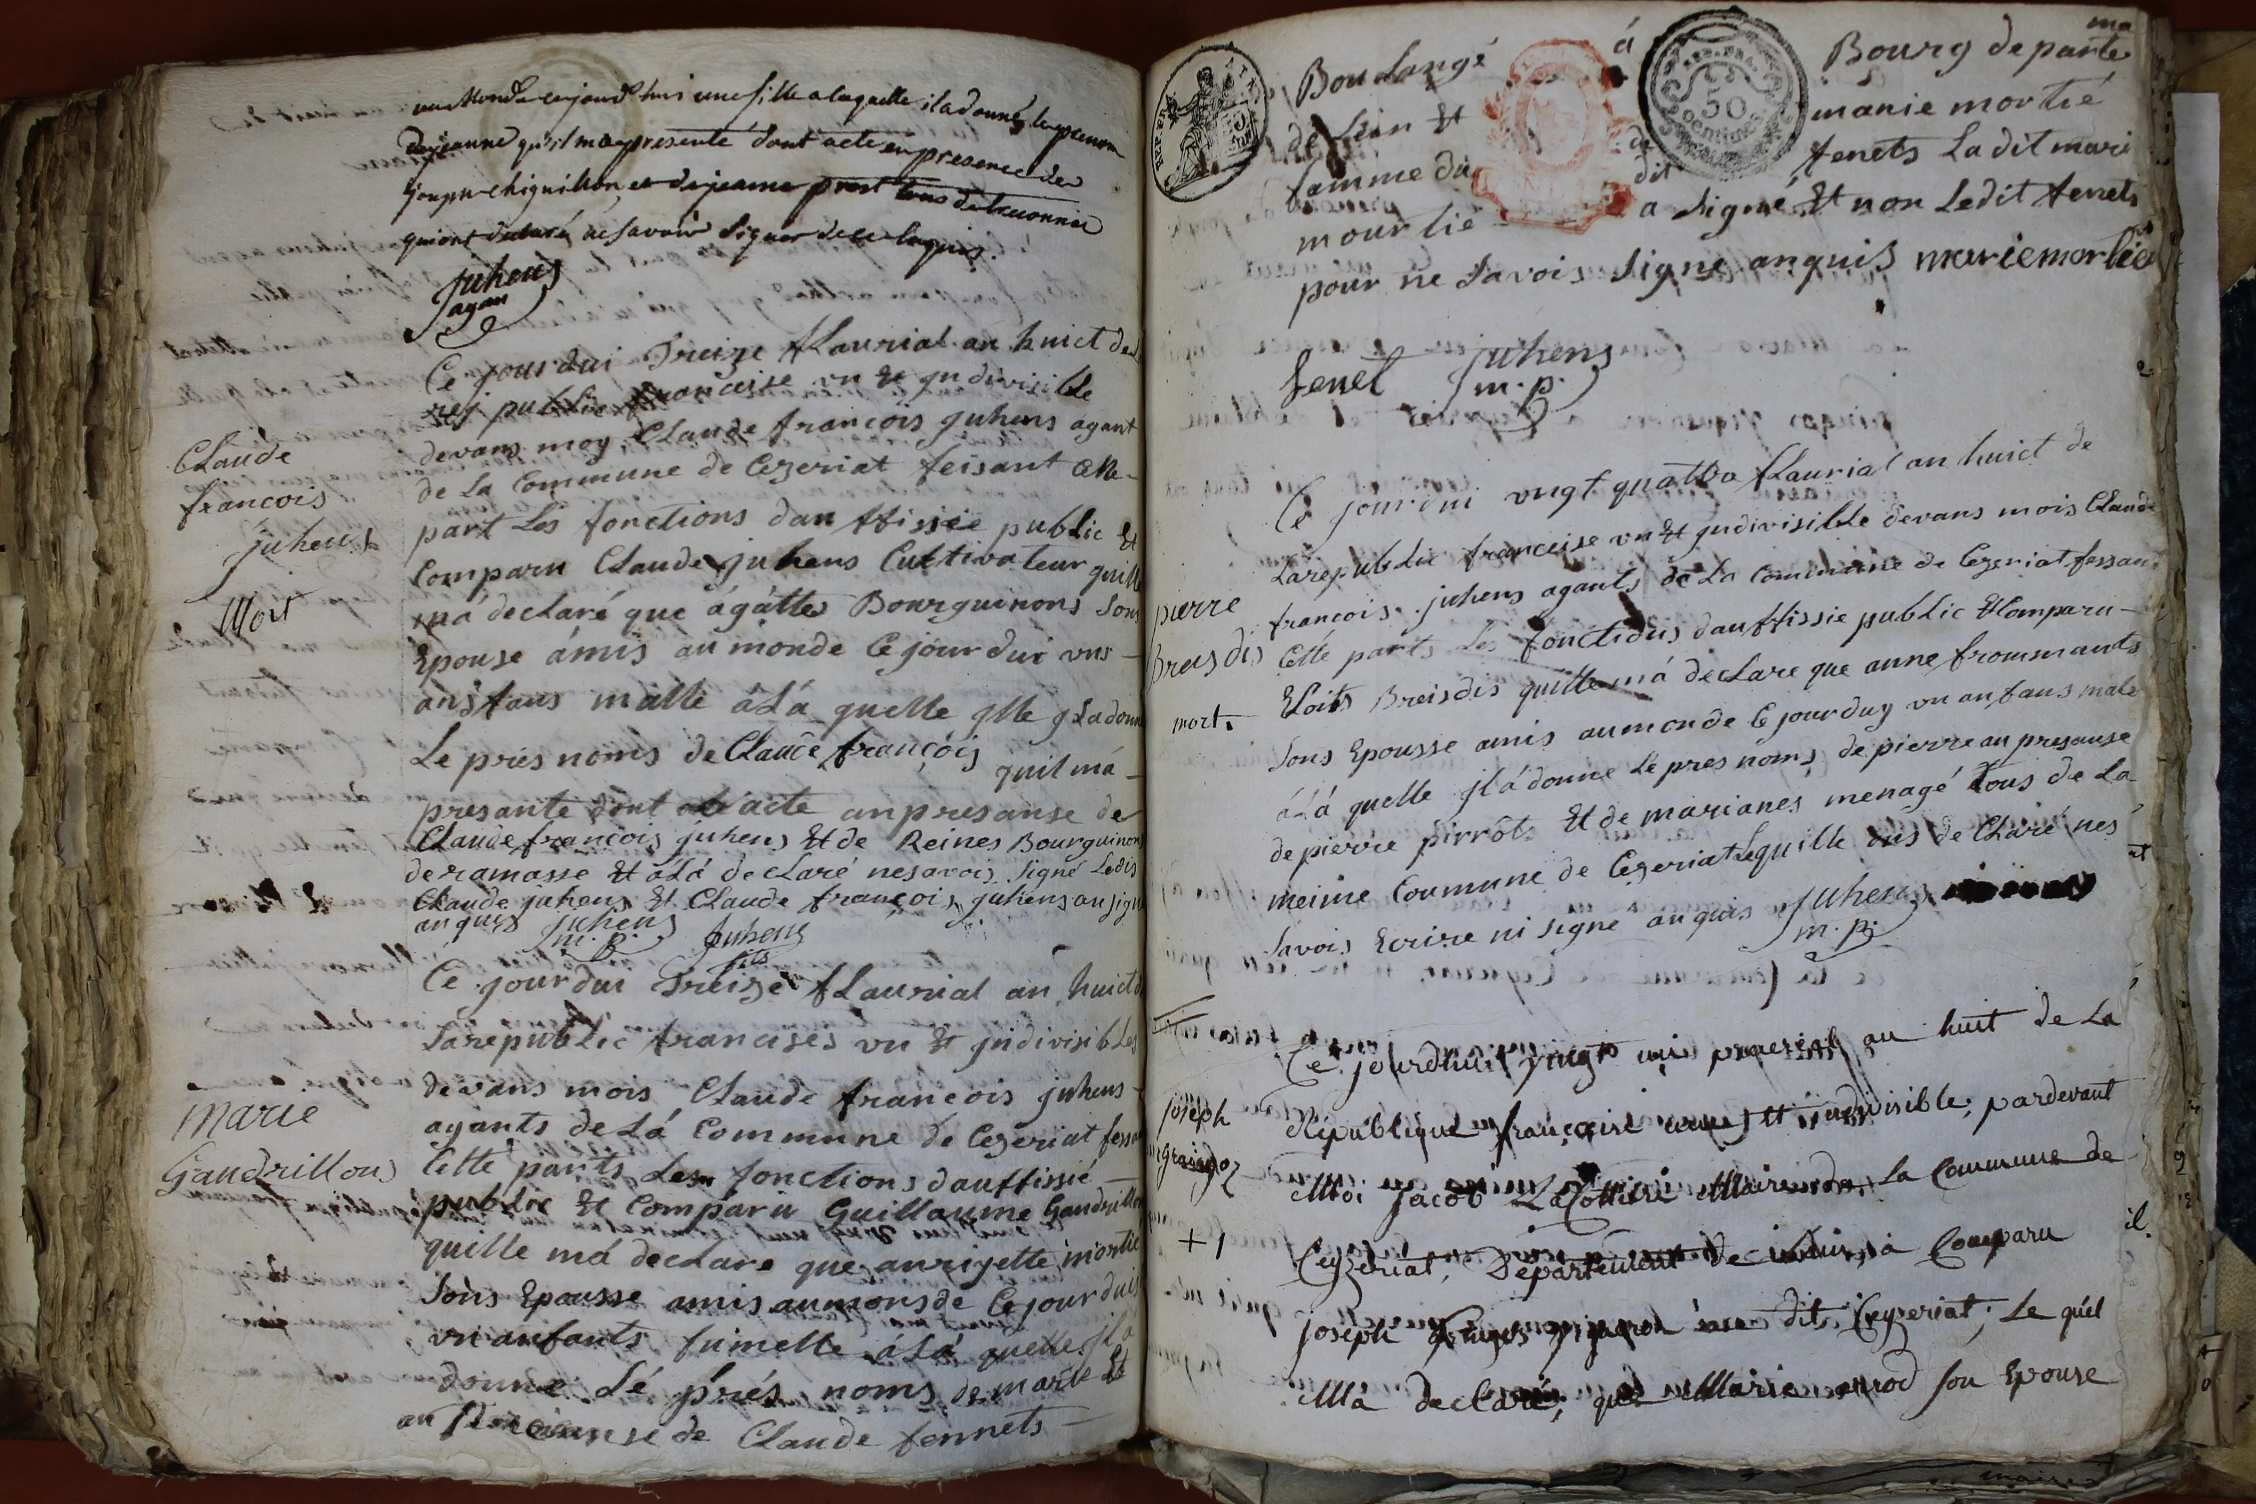 au Monde cejourd'hui une fille a laquelle il a donné le prenom
de jeanne qu'il m'a presenté dont acte en presence de
joseph chiguillon, et de jeanne prost tous de
qui ont declaré ne savoir signer de ce enquis.
juhens
agan
Ce jour dui Treize fLaurial an huict de
rej public francaise vn & jndivisible
devans moy Claude francois juhens agant
de La Commune de Cezeriat feisant cette
part Les fonctions dau ffissie public Et
Comparu Claude juhens Cultivateur quille
má declaré que ágátte Bourguinons Sons
Epouse ámis au monde Ce jour dui vns
ansfans malle áLá quelle jlle jLa donn
Le prés noms de Claude françois quil má
presante dont acte an presanse de
Claude françois juhens Et de Reines Bourguinon
de ramasse Et áLá de cLaré ne savois signé Ledis
Claude juhens Et Claude françois juhens an signe
anquis juhens juhens
m. p. fils
Claude
francois
juhens
Mort
Ce jour dui Treize fLaurial an huict
Larepublic francises vn & jndivisibLe
devans mois Claude francois juhens
agants de Lá Commune de Cezeriat fess
Cette parts Les fonctions dauffissié
public Et Comparu Guillaume Gaudrillon
quille má decLare que anriette mortie
Sons Epousse amis aumonsde Ce jour duis
vn anfants fumelle áLá quelle jLá
donne Lé prés noms de marie Et
an de Claude fennets
marie
Gaudrillons
Boulangé á Bourg de parte
ma
de Lein Et de manie mortié
famme du dit fenets La dit mari
mourtié a signé Et non Ledit fenets
pour ne savois signe anquis marie mortié
fenet juhens
m. p.
Ce jour dui vingt quattro fLaurial an huict de
Larepublic francaise vn Et jndivisible devans mois Claude
francois juhens agants de La Commune de Cezeriat fassan
Cette parts Les fonctions dauffissie public Et Comparu
ELoits Breisdis quille má decLare que anne frommants
Sons Epousse amis aumonde Ce jourduy vn anfans male
áLá quelle jLá donne Lé pres noms de pierre an presanse
de pierre pirrôt Et de marianes menagé tous de La
meime Commune de Cezeriat Lequille ons de CLaré nes
savois Ecrire ni signe anquis juhens
m. p.
pierre
Breisdis
mort.
Ce jourdhui vingt un prairial an huit de La
République française une et indivisible; pardevant
Moi jacob LaCottiere Maire de La Commune de
Ceyzériat, Département de L'ain, a Comparu
joseph vigneron au dit Ceyzeriat; Le quel
M'a declaré, que Marie son Epouse
joseph
+ 1
il